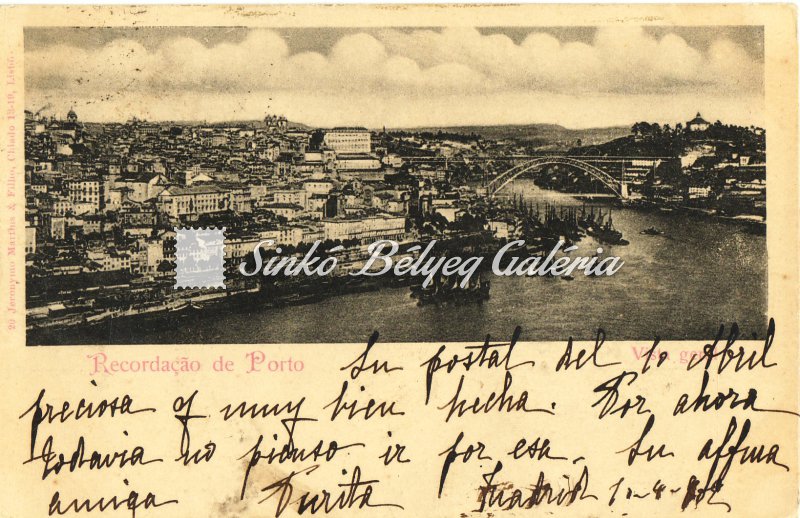 20 Jeronymo Martins & Filho, Chiado 13-19, Lisboa
Sinkó Bélyeg Galéria
Recordação de Porto
Su postal del 10 Abril
preciosa y muy bien hecha. Por ahora
todavia no pienso ir por esa. Su affma
amiga Purita Madrid